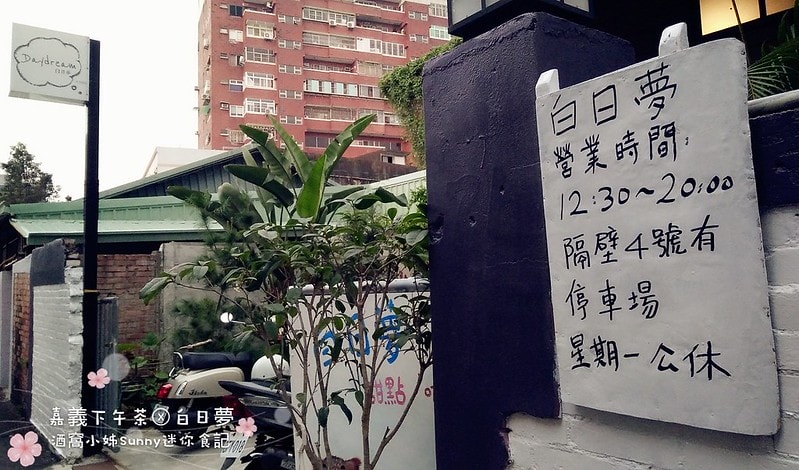 Daydream
白日夢
營業時間:
12:30~20:00
隔壁4號有
停車場
星期一公休
白日夢
甜點
嘉義下午茶ⓧ白日夢
酒窩小姊Sunny迷你食記